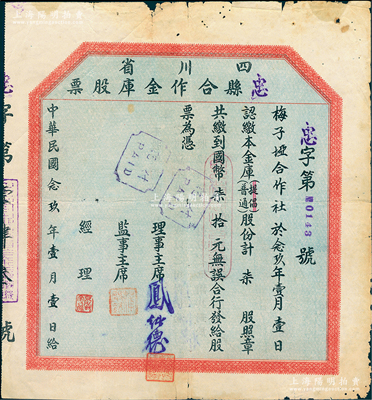 四川省
忠縣合作金庫股票
忠字第 0143 號
梅子埡合作社於念玖年壹月壹日
認繳本金庫(提倡普通)股份計 柒 股照章
共繳到國幣 柒拾 元無誤合行發給股
票為憑
理事主席
監事主席
經理
中華民國念玖年壹月壹日給
忠字第
號
PAID
PAID
上海陽明拍賣